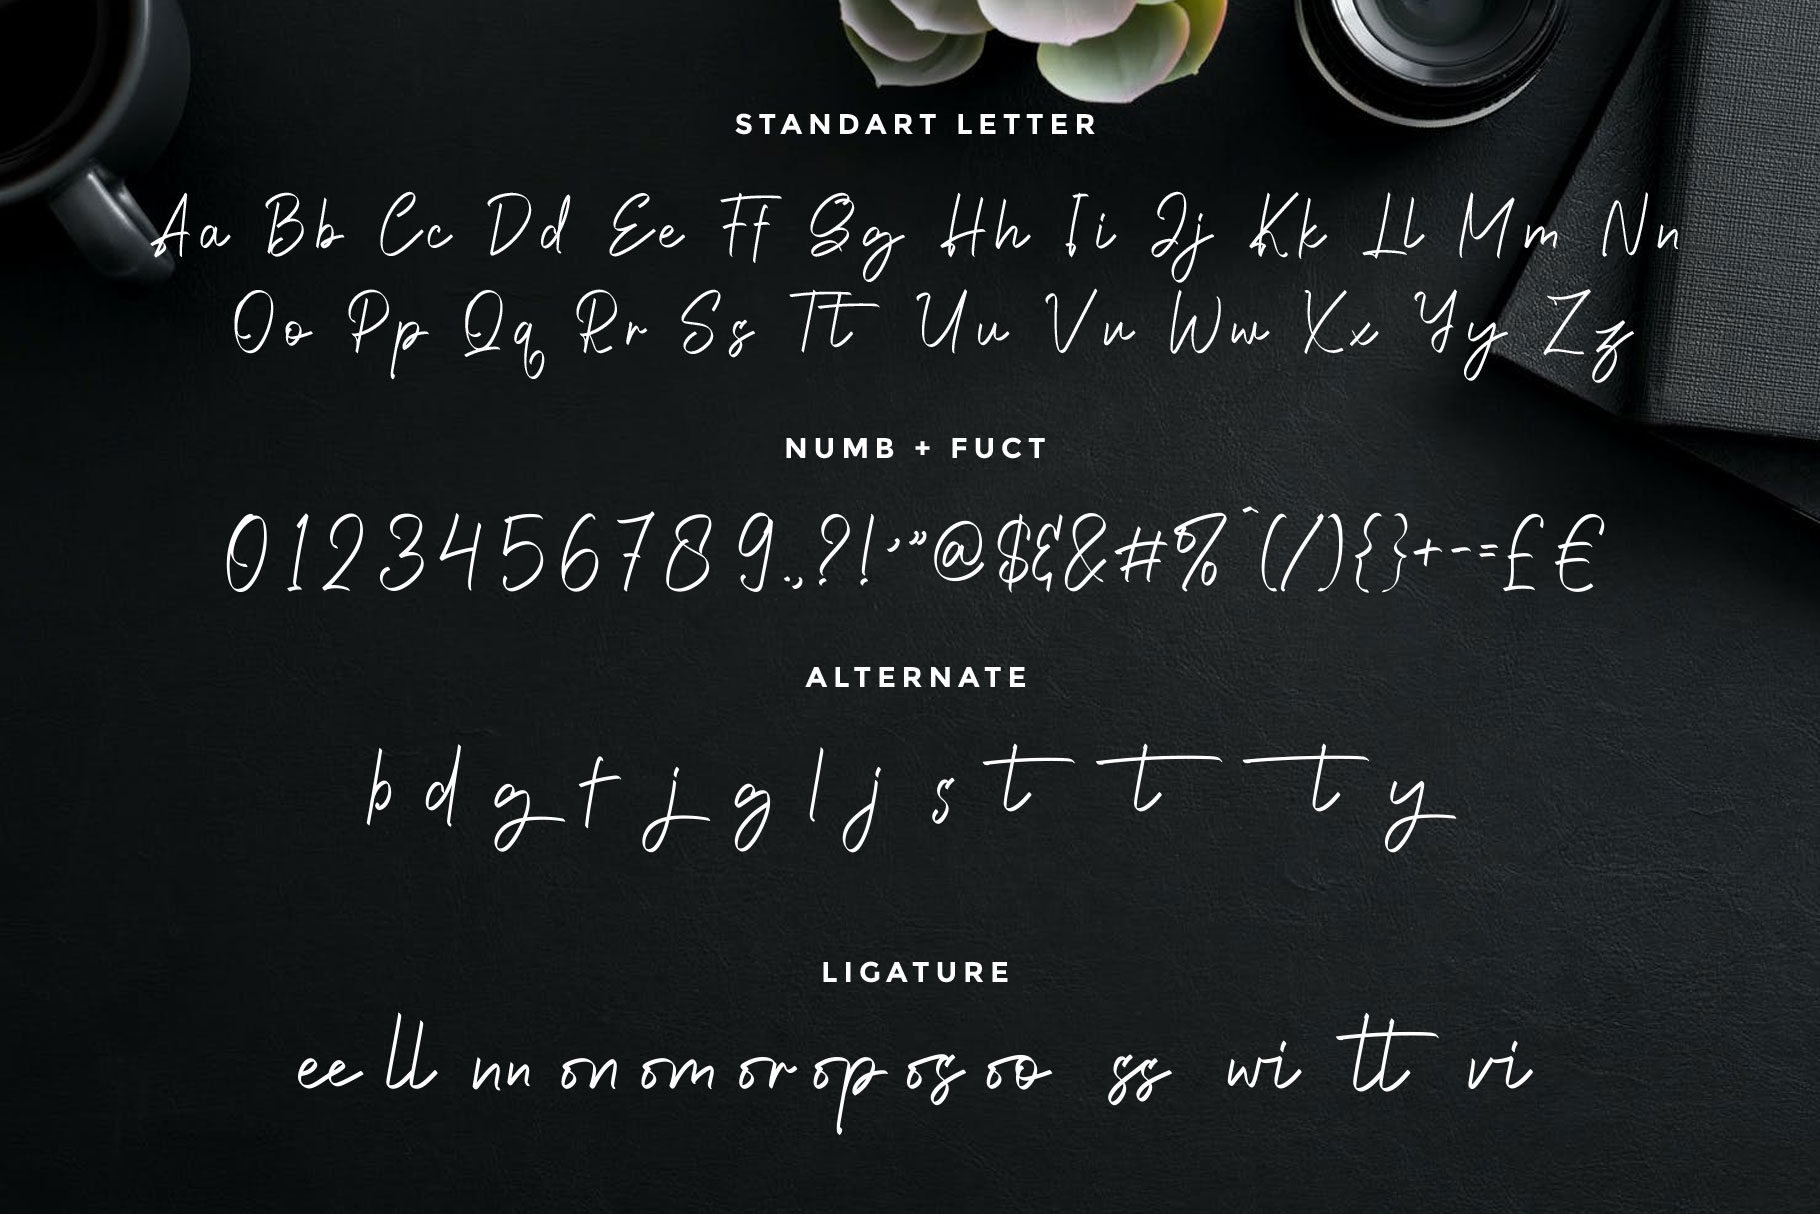 STANDART LETTER
Aa Bb Cc Dd Ee Ff Gg Hh Ii Jj Kk Ll Mm Nn
Oo Pp Qq Rr Ss Tt Uu Vv Ww Xx Yy Zz
NUMB + FUCT
0123456789.,?!'"@$&&#%^(/){}+--=£€
ALTERNATE
b d g f j g l j s t t t y
LIGATURE
ee ll nn on om or op os oo ss wi tt vi